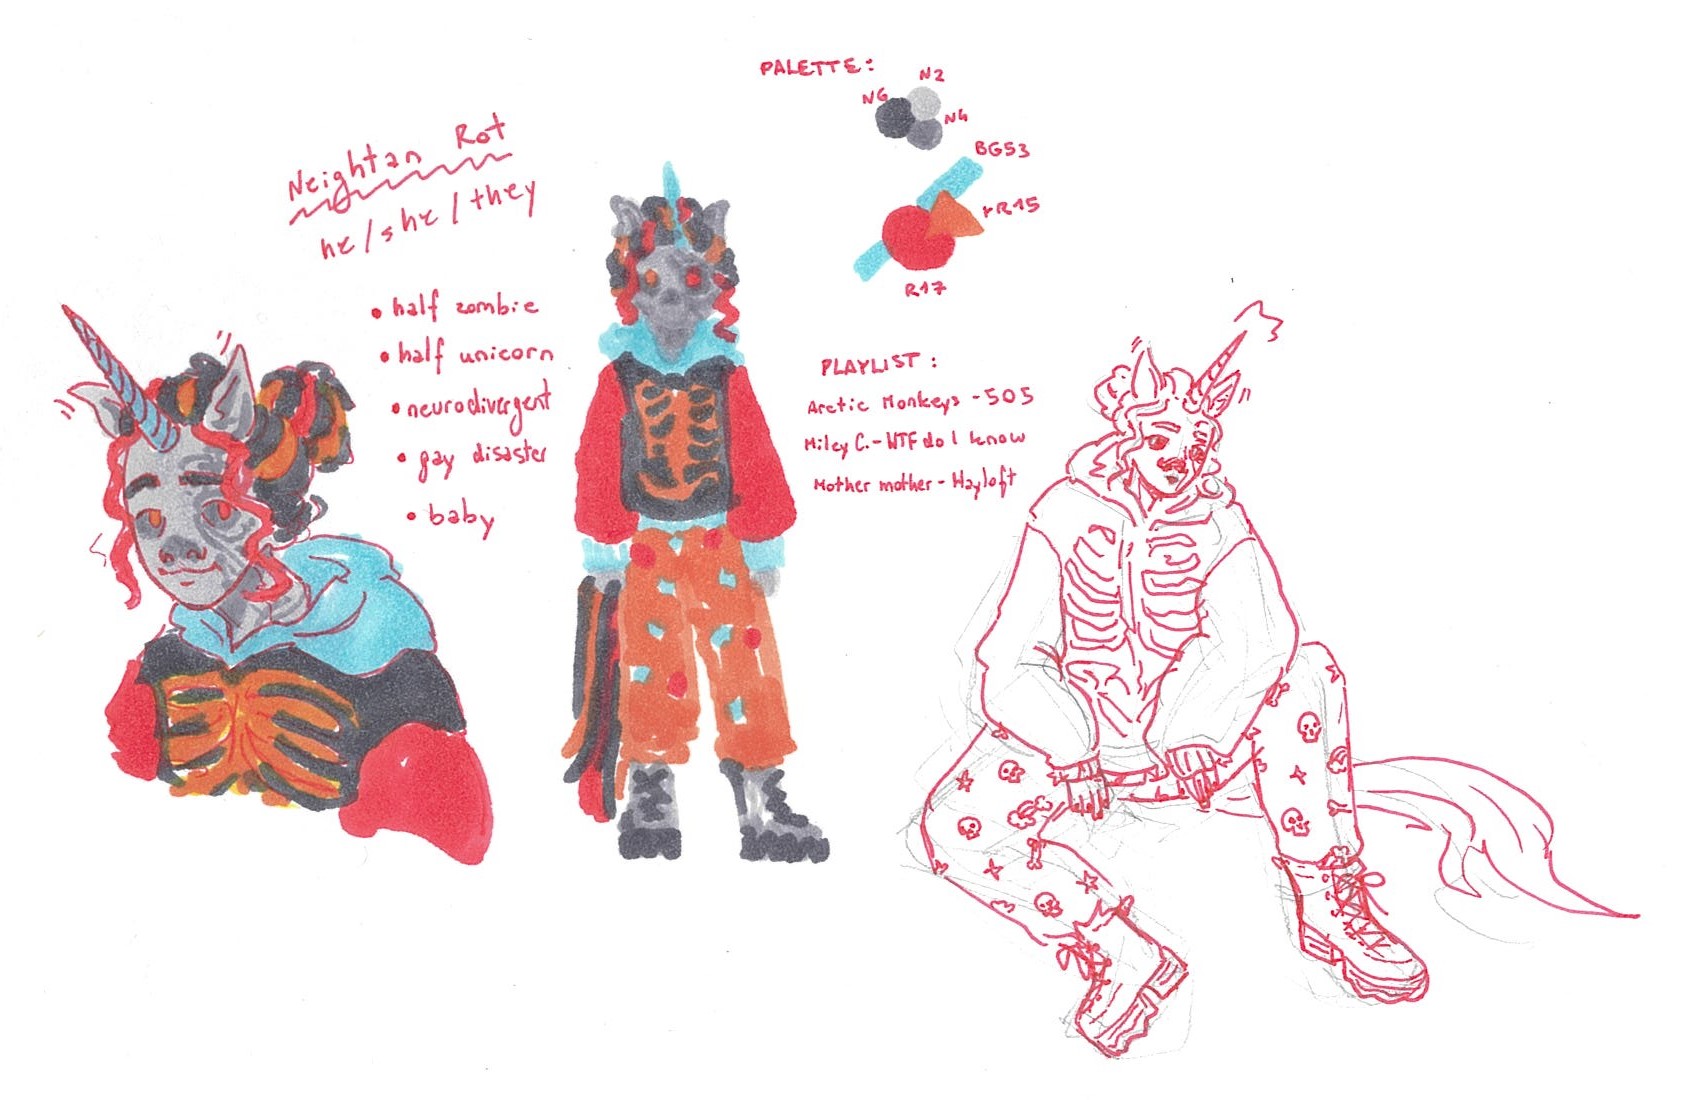 Neightan Rot
he/she/they
• half zombie
• half unicorn
• neurodivergent
• gay disaster
• baby
PALETTE:
N2
N6
N4
BG53
YR15
R17
PLAYLIST:
Arctic Monkeys - 505
Miley C. - WTF do I know
Mother mother - Hayloft